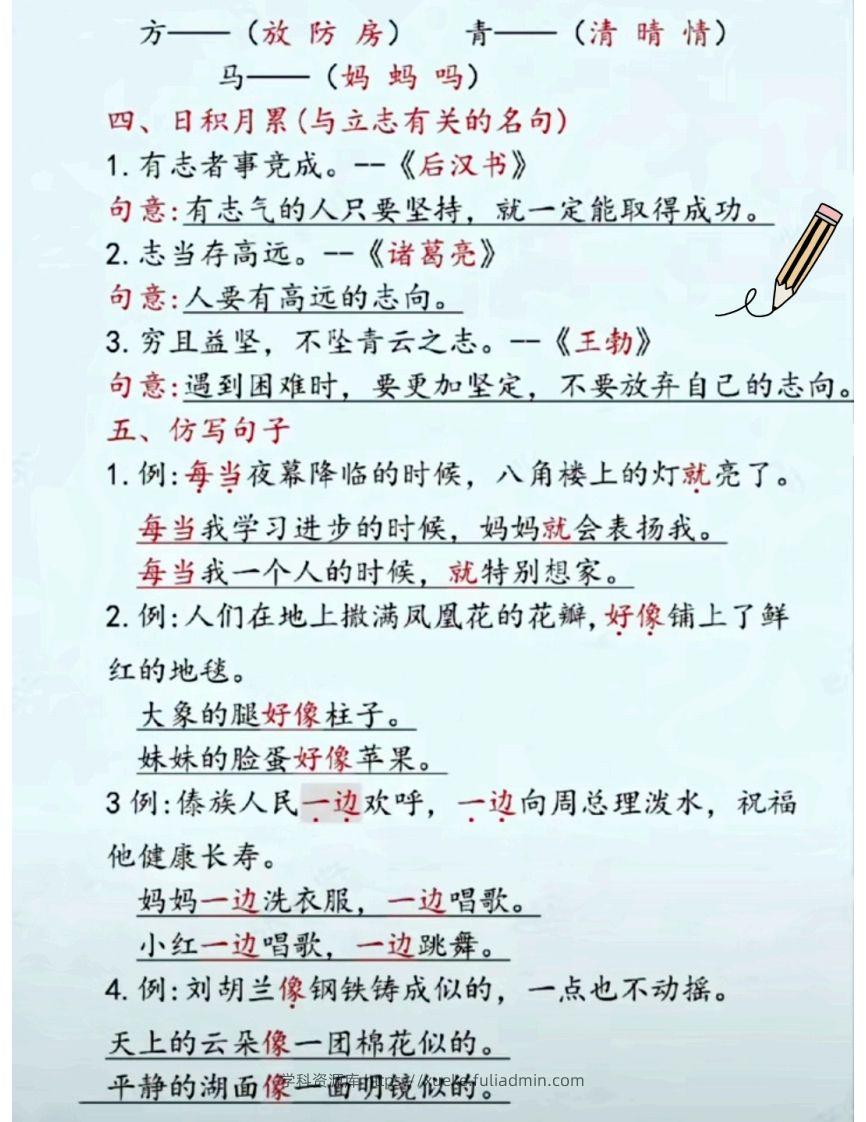 方——（放 防 房） 青——（清 晴 情）
马——（妈 蚂 吗）
四、日积月累(与立志有关的名句)
1.有志者事竞成。--《后汉书》
句意:有志气的人只要坚持，就一定能取得成功。
2.志当存高远。--《诸葛亮》
句意:人要有高远的志向。
3.穷且益坚，不坠青云之志。--《王勃》
句意:遇到困难时，要更加坚定，不要放弃自己的志向。
五、仿写句子
1.例:每当夜幕降临的时候，八角楼上的灯就亮了。
每当我学习进步的时候，妈妈就会表扬我。
每当我一个人的时候，就特别想家。
2.例:人们在地上撒满凤凰花的花瓣,好像铺上了鲜
红的地毯。
大象的腿好像柱子。
妹妹的脸蛋好像苹果。
3例:傣族人民一边欢呼，一边向周总理泼水，祝福
他健康长寿。
妈妈一边洗衣服，一边唱歌。
小红一边唱歌，一边跳舞。
4.例:刘胡兰像钢铁铸成似的，一点也不动摇。
天上的云朵像一团棉花似的。
平静的湖面像一面明镜似的。
学科资源库 https://xueke.fuliadmin.com